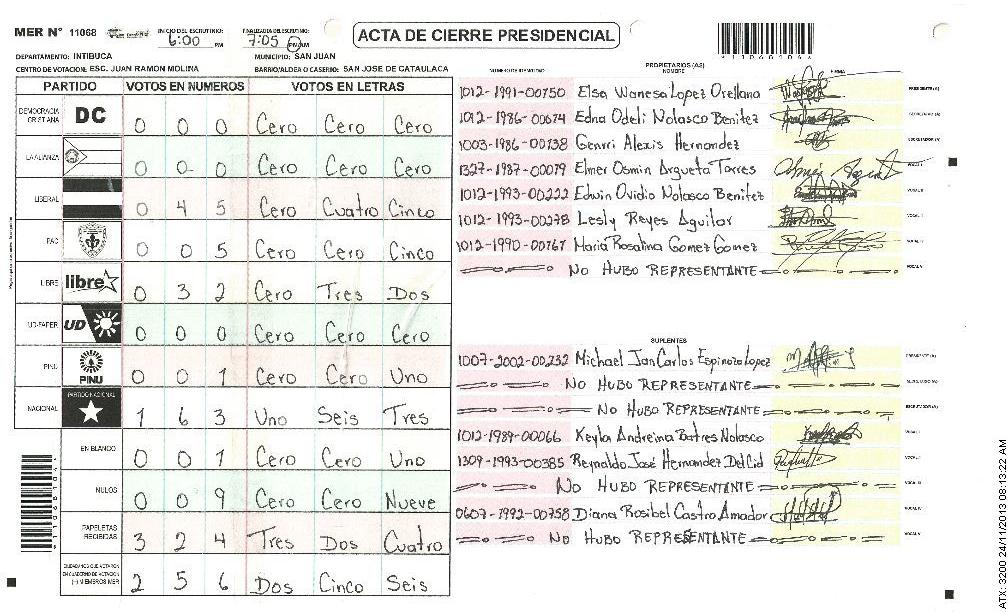 MER N° 11068 INICIO DEL ESCRUTINIO: 6:00 PM FINALIZA EL ESCRUTINIO: 7:05 PM/AM
ACTA DE CIERRE PRESIDENCIAL
DEPARTAMENTO: INTIBUCA MUNICIPIO: SAN JUAN
CENTRO DE VOTACION: ESC. JUAN RAMON MOLINA BARRIO/ALDEA O CASERIO: SAN JOSE DE CATAULACA
PARTIDO VOTOS EN NUMEROS VOTOS EN LETRAS
DEMOCRACIA CRISTIANA DC 0 0 0 Cero Cero Cero
LA ALIANZA 0 0 0 Cero Cero Cero
LIBERAL 0 4 5 Cero Cuatro Cinco
PAC 0 0 5 Cero Cero Cinco
LIBRE libre 0 3 2 Cero Tres Dos
UD-FAPER UD 0 0 0 Cero Cero Cero
PINU PINU 0 0 1 Cero Cero Uno
NACIONAL PARTIDO NACIONAL 1 6 3 Uno Seis Tres
EN BLANCO 0 0 1 Cero Cero Uno
NULOS 0 0 9 Cero Cero Nueve
PAPELETAS RECIBIDAS 3 2 4 Tres Dos Cuatro
CIUDADANOS QUE VOTARON EN CUADERNO DE VOTACION (+) MIEMBROS MER 2 5 6 Dos Cinco Seis
PROPIETARIOS (AS)
NUMERO DE IDENTIDAD NOMBRE FIRMA
1012-1991-00750 Elsa Wanesa Lopez Orellana PRESIDENTE (A)
1012-1986-00674 Edna Odeli Nolasco Benitez SECRETARIO (A)
1003-1986-00138 Genrri Alexis Hernandez ESCRUTADOR (A)
1327-1987-00079 Elmer Osmin Argueta Torres VOCAL I
1012-1993-00222 Edwin Ovidio Nolasco Benitez VOCAL II
1012-1993-00278 Lesly Reyes Aguilar VOCAL III
1012-1990-00767 Maria Rosalina Gomez Gomez VOCAL IV
No Hubo Representante VOCAL V
SUPLENTES
1007-2002-00232 Michael Jan Carlos Espinoza Lopez PRESIDENTE (A)
No Hubo Representante SECRETARIO (A)
No Hubo Representante ESCRUTADOR (A)
1012-1989-00066 Keyla Andreina Batres Nolasco VOCAL I
1309-1993-00385 Reynaldo José Hernandez Del Cid VOCAL II
No Hubo Representante VOCAL III
0607-1992-00758 Diana Rosibel Castro Amador VOCAL IV
No Hubo Representante VOCAL V
ATX: 3200 24/11/2013 08:13:22 AM